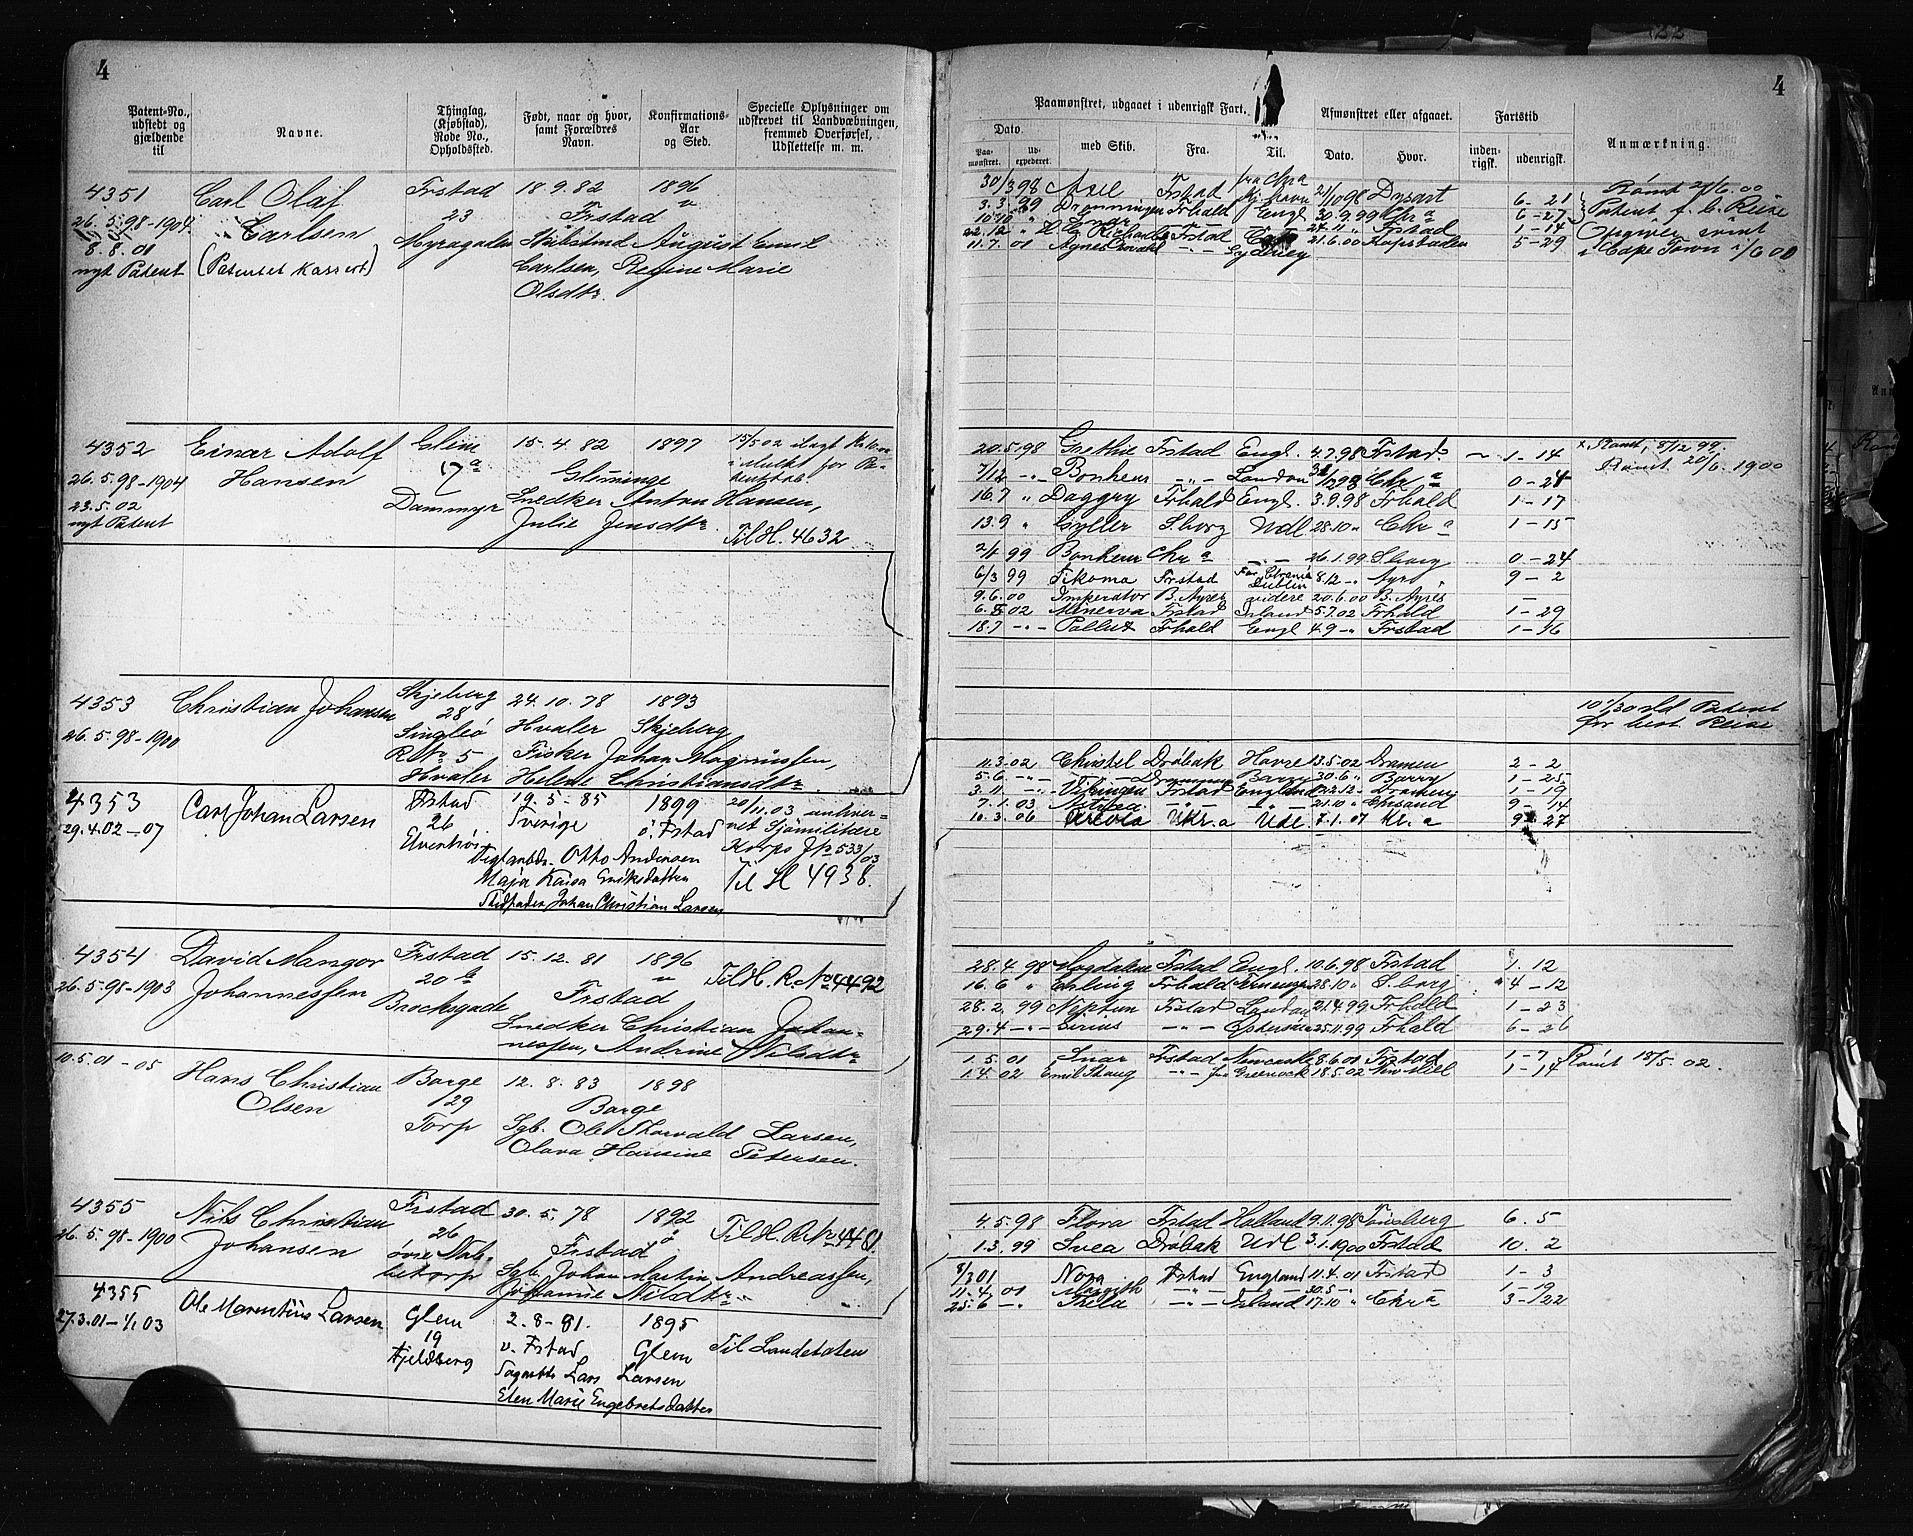 4
Patent-No., udstedt og gjældende til
Navne.
Thinglag, (Kjøbstad), Rode No., Opholdssted.
Født, naar og hvor, samt Forældres Navn.
Konfirmations-Aar og Sted.
Specielle Oplysninger om udskrevet til Landvæbningen, fremmed Overførsel, Udslettelse m. m.
4351
26.5.98-1904
8.8.01
nyt Patent
Carl Olaf
Carlsen
(Patentet kassert)
Frstad
23
Myragaden
18.9.82
Frstad
1896
"
August Emil
Carlsen, Regine Marie
Olsdtr.
4352
26.5.98-1904
23.5.02
nyt Patent
Einar Adolf
Hansen
Glem
17a
Dammyr
15.4.82
Glemminge
1897
Snedker Anton Hansen,
Julie Jensdtr.
15/5 02 ilagt
i Mulkt for Pa-
Til H. 4632
4353
26.5.98-1900
Christian Johansen
Skjeberg
28
Singleø
R No 5
Hvaler
24.10.78
Hvaler
1893
Skjeberg
Fisker Johan Magnussen,
Helene Christiansdtr.
4353
29.4.02-07
Carl Johan Larsen
Frstad
26
19-5-85
Sverige
1899
ö. Fstad
Otto Andersen
Maja Kaisa Eriksdatter
Stedfader Johan Christian Larsen
20/11.03 anhver-
vet Sjømilitære
Korps J No 533/03
Til H 4938.
4354
26.5.98-1903
David Mangor
Johannessen
Frstad
20b
Brocksgade
15.12.81
Frstad
1896
"
Snedker Christian Johan-
nessen, Andrine Nilsdtr
Til H. R. No 4492
10.5.01-05
Hans Christian
Olsen
Borge
29
Torp
12.8.83
Borge
1898
Sgb. Ole Thorvald Larsen,
Olava Hansine Petersen.
4355
26.5.98-1900
Nils Christian
Johansen
Frstad
26
30.5.78
Frstad
1892
ö
Sgb. Johan Martin Andreassen,
Johanne Nilsdtr.
Til H. R. No 4481.
4355
27.3.01-1/1 03
Ole Marentius Larsen
Glem
19
Kjeldberg
2.8-81.
v. Fstad
1895
Glem
Lars Larsen
Elen Marie Engebretsdatter
Til Landetaten
4
Paamønstret, udgaaet i udenrigsk Fart.
Afmønstret eller afgaaet.
Fartstid
Anmærkning.
Dato.
Paamønstret.
Udexpederet.
med Skib.
Fra.
Til.
Dato.
Hvor.
indenrigsk.
udenrigsk.
30/3 98 Axel Frstad 21/10 98 Dysart 6-21 Rømt 20/6.00
3.3.99 Dronningen Frhald Engl 30.9.99 Chr a 6-27 Patent f. b. Reise
22.12 Frstad 24.11 Frstad 1-14 Opgiver svint
11.7.01 Agnes Oswald Sydney 21.6.00 Kapstaden 5-29 i Cape Town i/6 00
20.5.98 Grethe Frstad Engl. 4.7.98 Frstad 1-14 x Rømt, 8/12 99.
7/12 Bonheur London 31/12 98 Chr a 0-24 Rømt 20/6.1900
16.7 " Daggry Frhald Engl. 3.9.98 Frhald 1-17
13.9 " Gyller S.borg Udl 28.10 " Chr a 1-15
2/1 99 Bonheur Chr a 26.1.99 S.borg 0-24
6/3 99 Tikoma Frstad Dublin 8.12 Ayr 9-2
9.6.00 Imperator B. Ayres videre 20.6.00 B. Ayres -
6.5.02 Minerva Frstad Irland 5.7.02 Frhald 1-29
18.7 Pollux Frhald Engl 4.9 Frstad 1-16
10 1/30 sld Patent
for best. Reise
11.3.02 Christel Drøbak Havre 13.5.02 Dramen 2-2
5.6 Drammen Barry 30.6 " Barry 1-25
3.11 Vikingen Frstad England 22.12 Dramen 1-19
7.1.03 21.10 " Chrsand 9-14
10.3.06 Kr.a Udl. 7.1.07 Kr.a 9-27
28.4.98 Magdalene Frstad Engl. 10.6.98 Frstad 1.12
16.6 " Erling Frhald 28.10 " S.borg 4-12
28.2.99 Neptun Frstad London 21.4.99 Frhald 1-23
29.4 Serius 25.11.99 Frhald 6-26
1.5.01 Snar Frstad Newcastle 8.6.01 Frstad 1-7 Rømt 18/5.02.
1.4.02 Emil Stang Greenock 18.5.02 1-14
4.5.98 Flora Frstad Holland 9.11.98 Tønsberg 6.5
1.3.99 Svea Drøbak Udl 3.1.1900 Frstad 10.2
8/3 01 Nora Fstad England 11.4.01 Frstad 1-3
11.4.01 Margith 30.5 1-19
25.6 Thela Irland 17.10 " Chr a 3-22